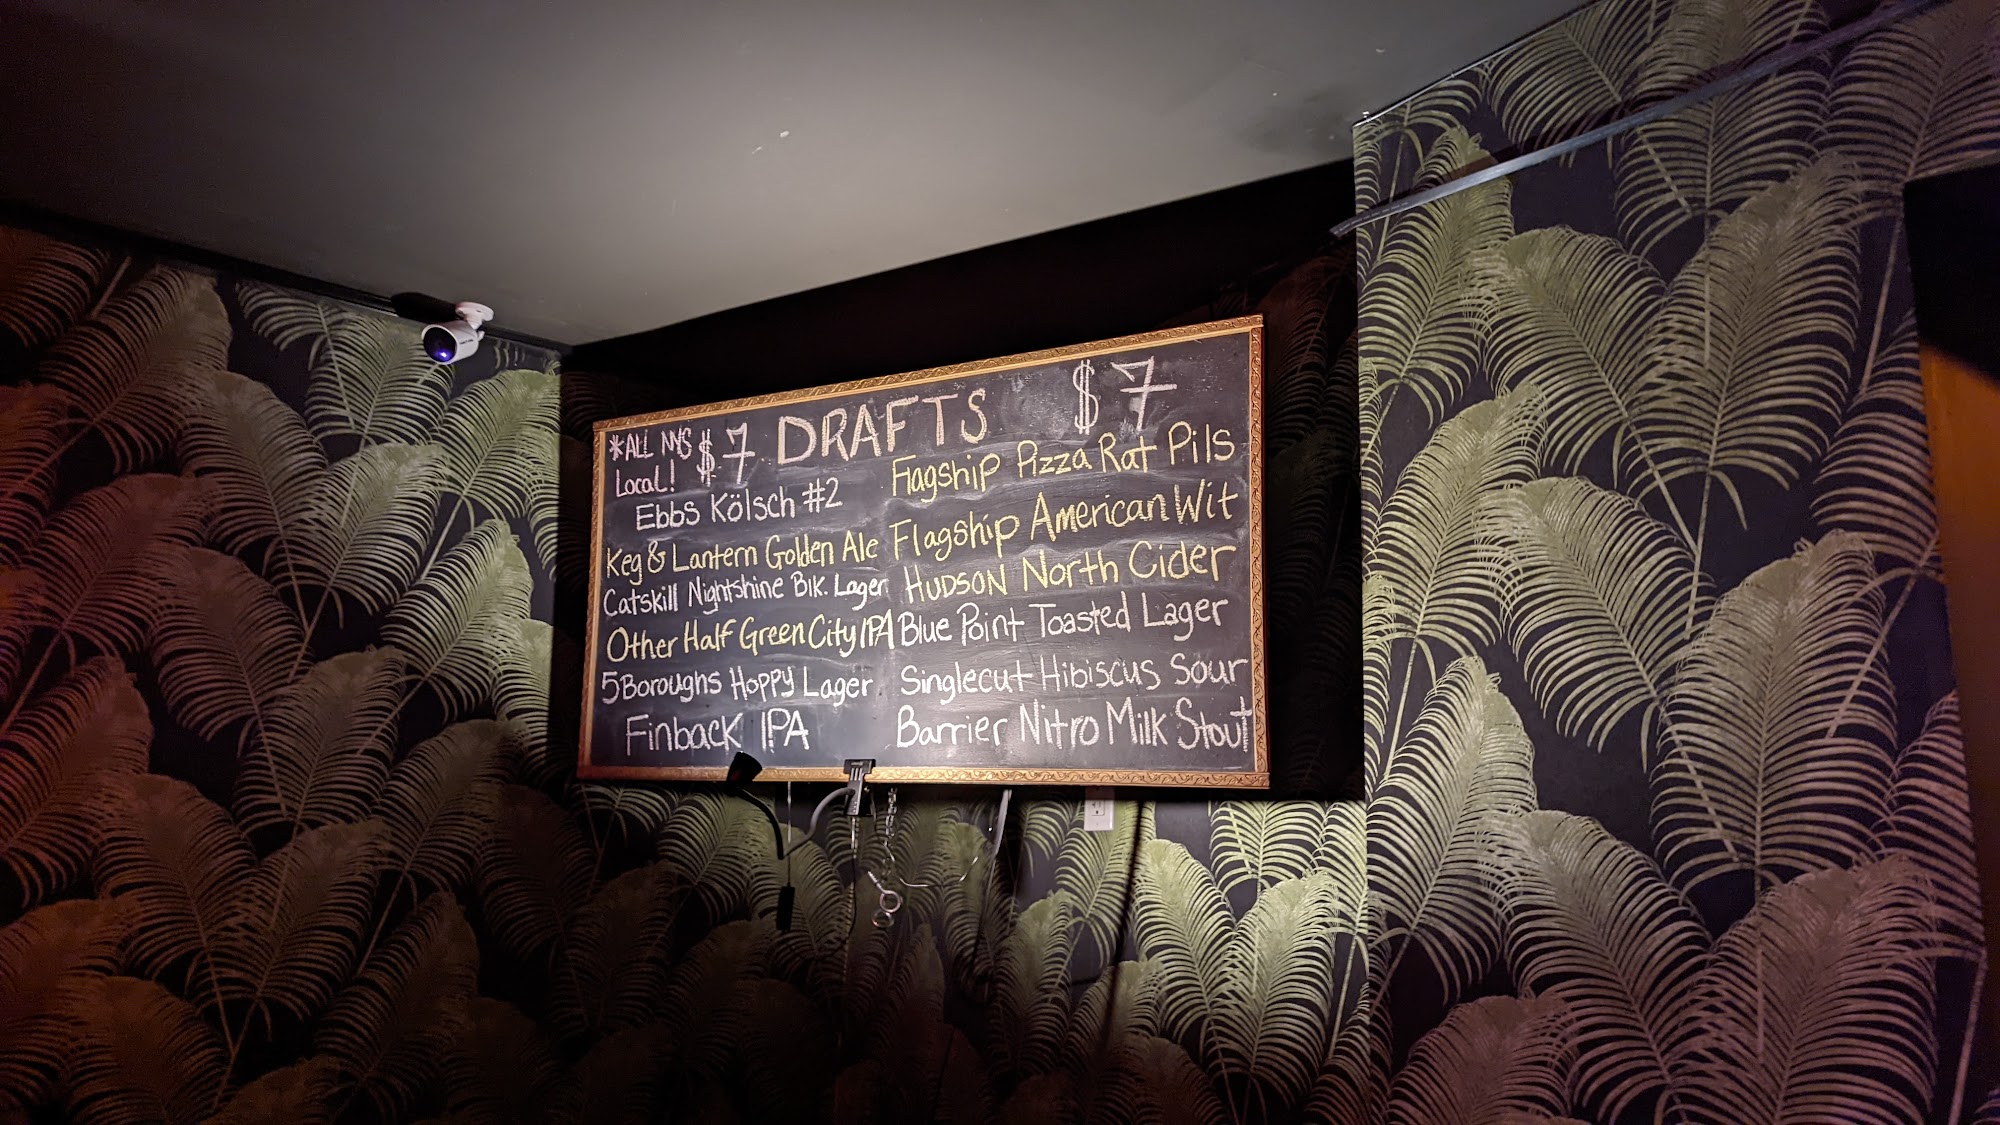 *ALL NYS
LocaL!
$7 DRAFTS $7
Ebbs Kölsch #2
Keg & Lantern Golden Ale
Catskill Nightshine Blk. Lager
Other Half Green City IPA
5 Boroughs Hoppy Lager
Finback IPA
Flagship Pizza Rat Pils
Flagship American Wit
HUDSON North Cider
Blue Point Toasted Lager
Singlecut Hibiscus Sour
Barrier Nitro Milk Stout